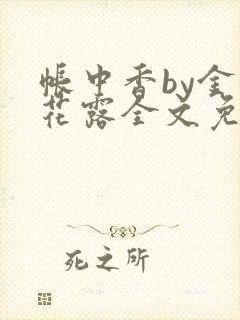 帐中香by金
花露全文免
死之所